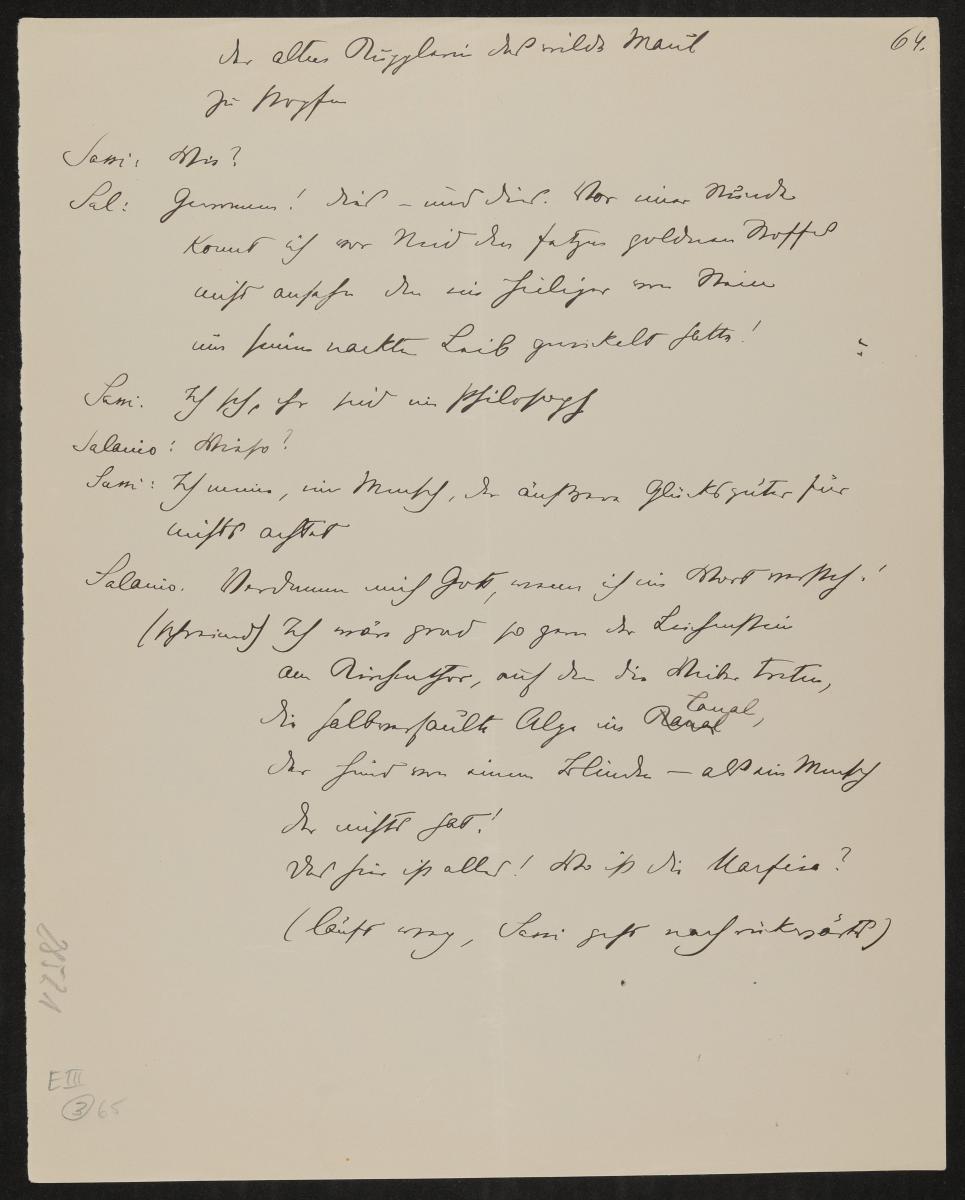 64.
der alten Kupplerin das wilde Maul
zu stopfen
Sassi: Wie?
Sal: Gewonnen! dies – und dies. Vor einer Stunde
konnt ich vor Neid den Fetzen goldnen Stoffes
nicht ansehn den ein Heiliger von Stein
um seinen nackten Leib gewickelt hatte!
Sassi. Ich seh, ihr seid ein Philosoph
Salanio: Wieso?
Sassi: Ich meine, ein Mensch, der äußere Glücksgüter für
nichts achtet
Salanio. Verdamm mich Gott, wenn ich ein Wort versteh!
(schreiend) Ich wäre grad so gern der Leichenstein
am Kirchenthor, auf den die Weiber treten,
die halbverfaulte Alge im Canal,
der Hund von einem Blinden – als ein Mensch
der nichts hat!
Das hier ist alles! Wo ist die Marfisa?
(läuft weg, Sassi geht nach rückwärts)
28521
E III
3 65